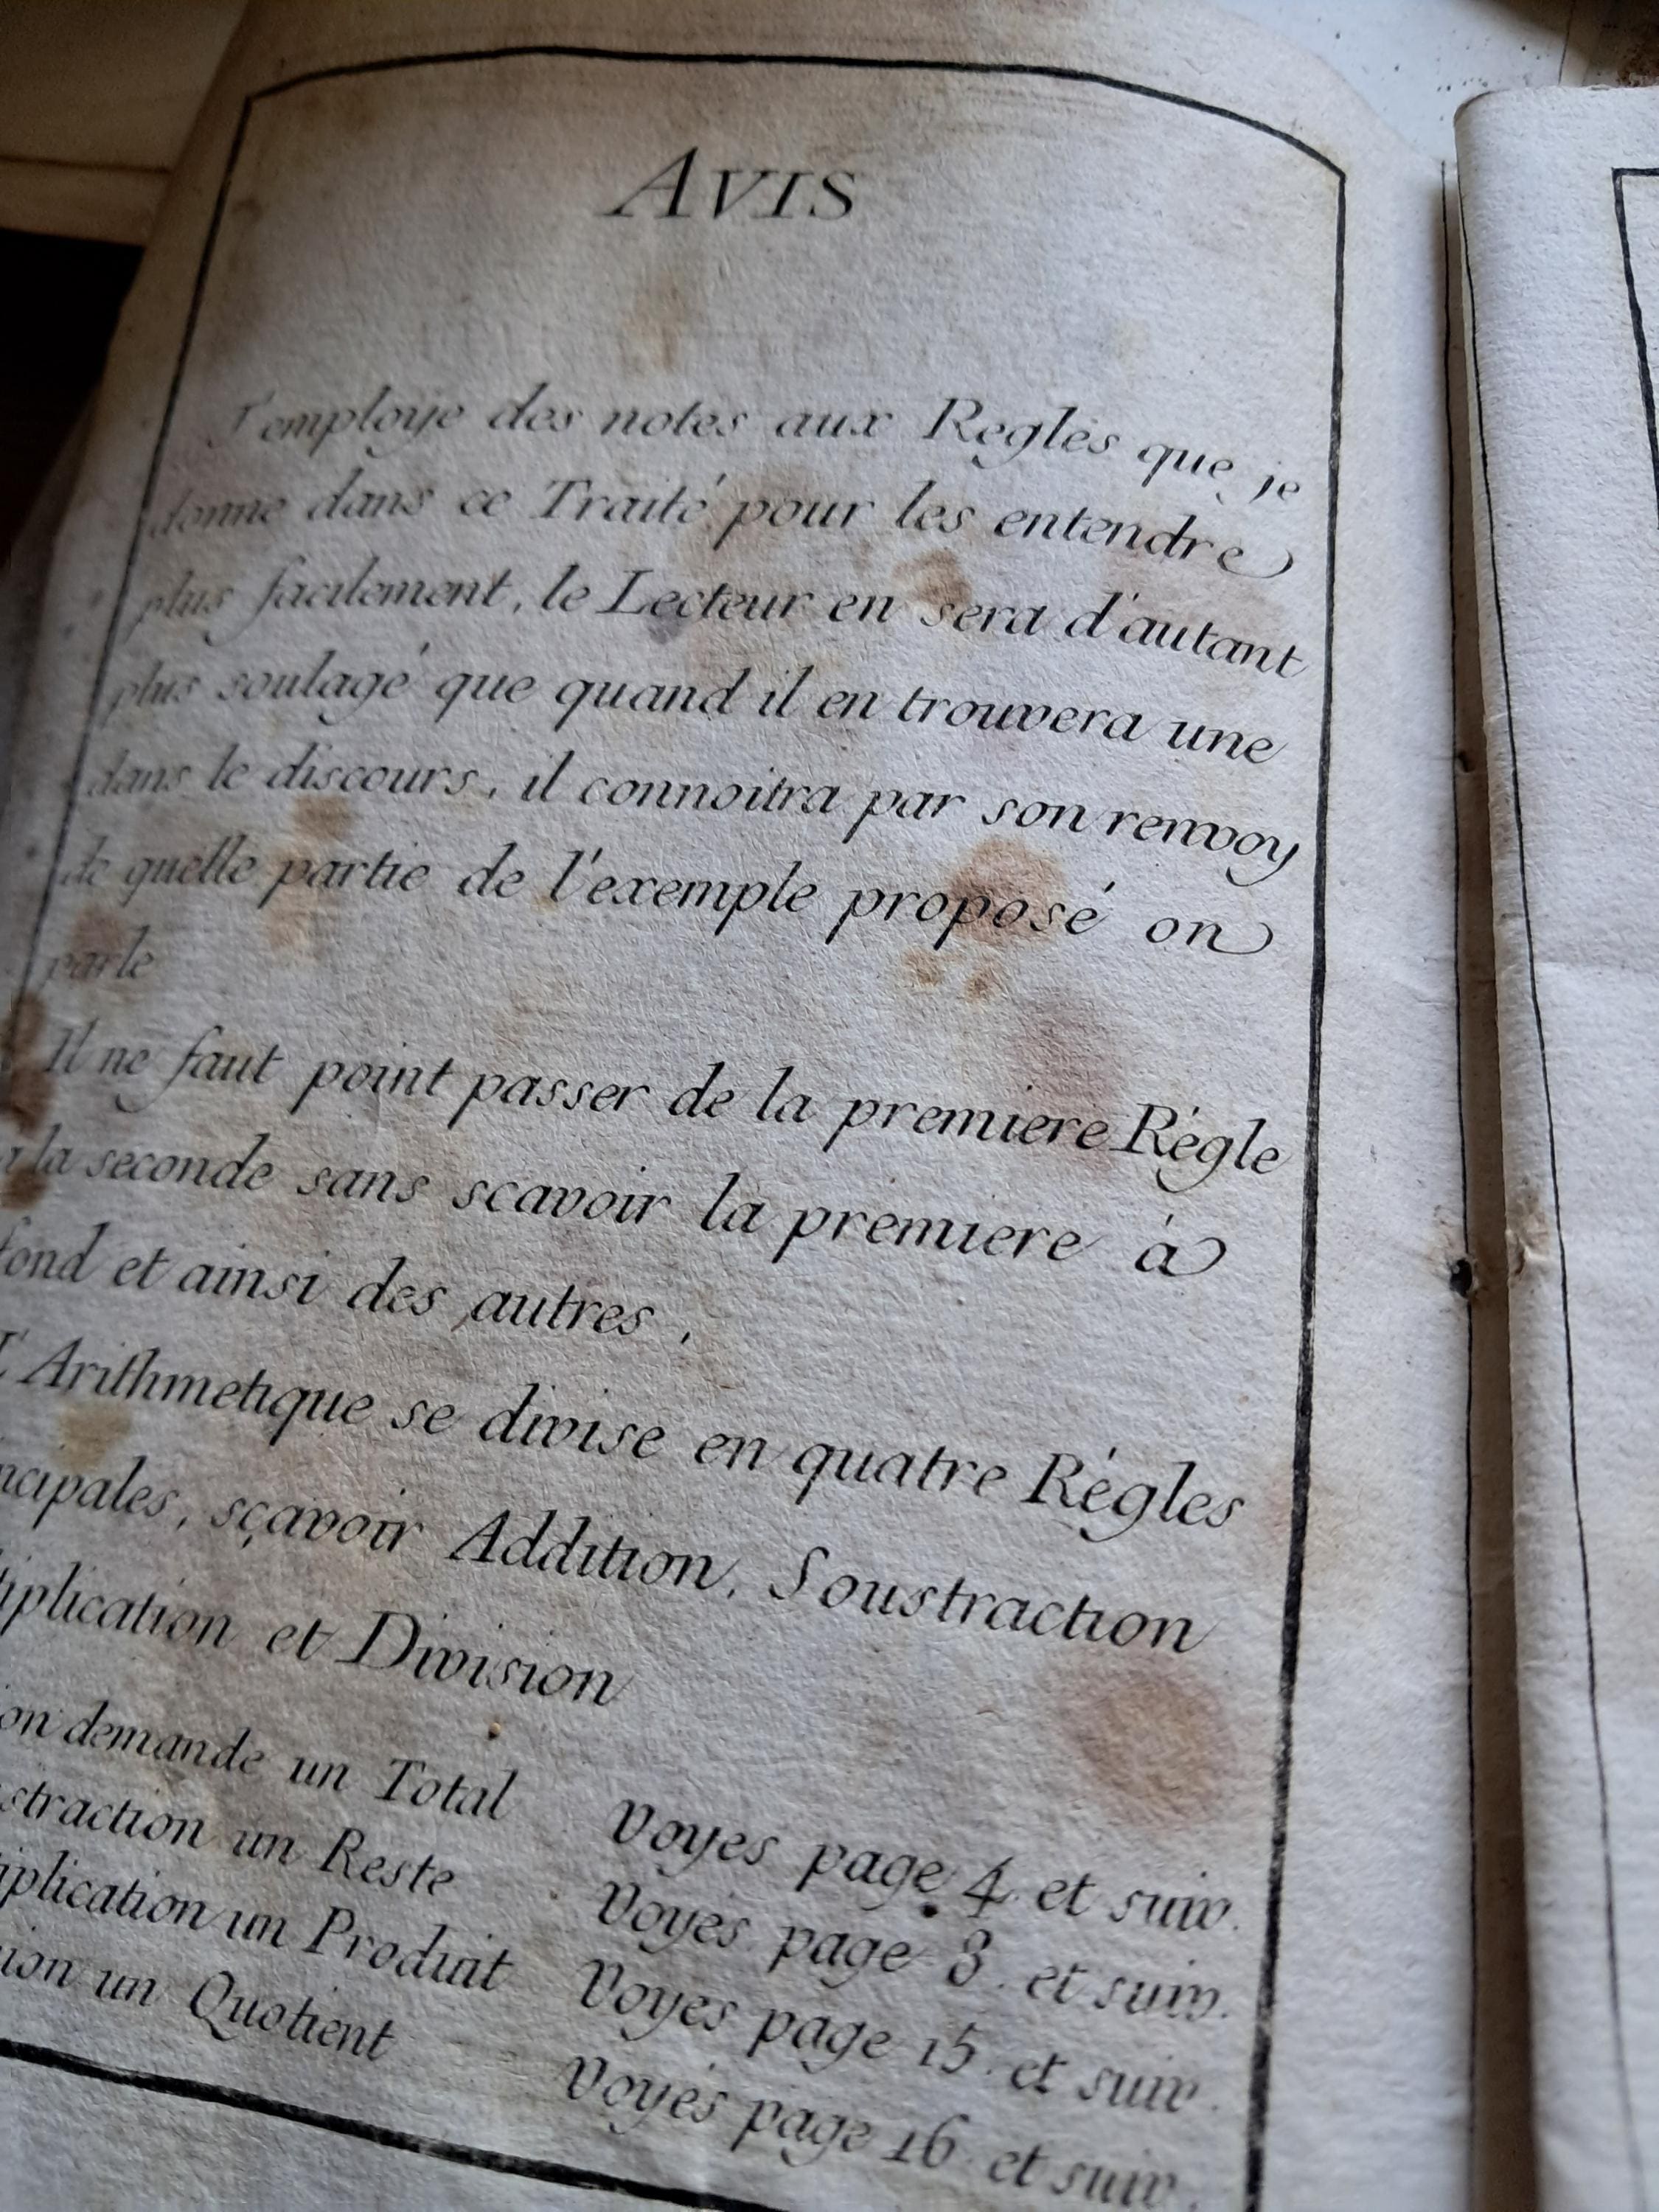 AVIS
J'employe des notes aux Regles que je
donne dans ce Traité pour les entendre
plus facilement, le Lecteur en sera d'autant
plus soulagé que quand il en trouvera une
dans le discours, il connoitra par son renvoy
de quelle partie de l'exemple proposé on
parle
Il ne faut point passer de la premiere Régle
a la seconde sans scavoir la premiere à
fond et ainsi des autres,
L'Arithmetique se divise en quatre Régles
ncipales, sçavoir Addition, Soustraction
tiplication et Division
on demande un Total Voyes page 4 et suiv.
straction un Reste Voyes page 8. et suiv.
iplication un Produit Voyes page 15. et suiv.
ion un Quotient Voyés page 16 et suiv.